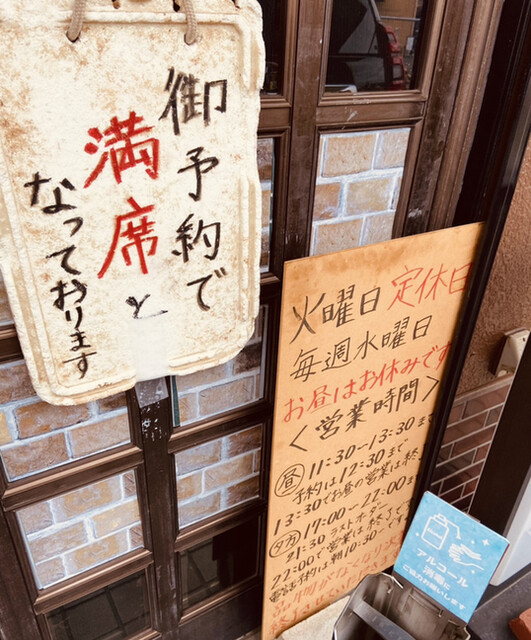 御予約で
満席と
なっております
火曜日 定休日
毎週水曜日
お昼はお休みです
<営業時間>
昼 11:30-13:30まで
予約は12:30まで
13:30でお昼の営業は終
夕方 17:00-22:00ま
21:30ラストオーダー
22:00で営業は終了で
電話予約は朝10:30~です
品切れがなくなり
アルコール
消毒に
ご協力お願いします